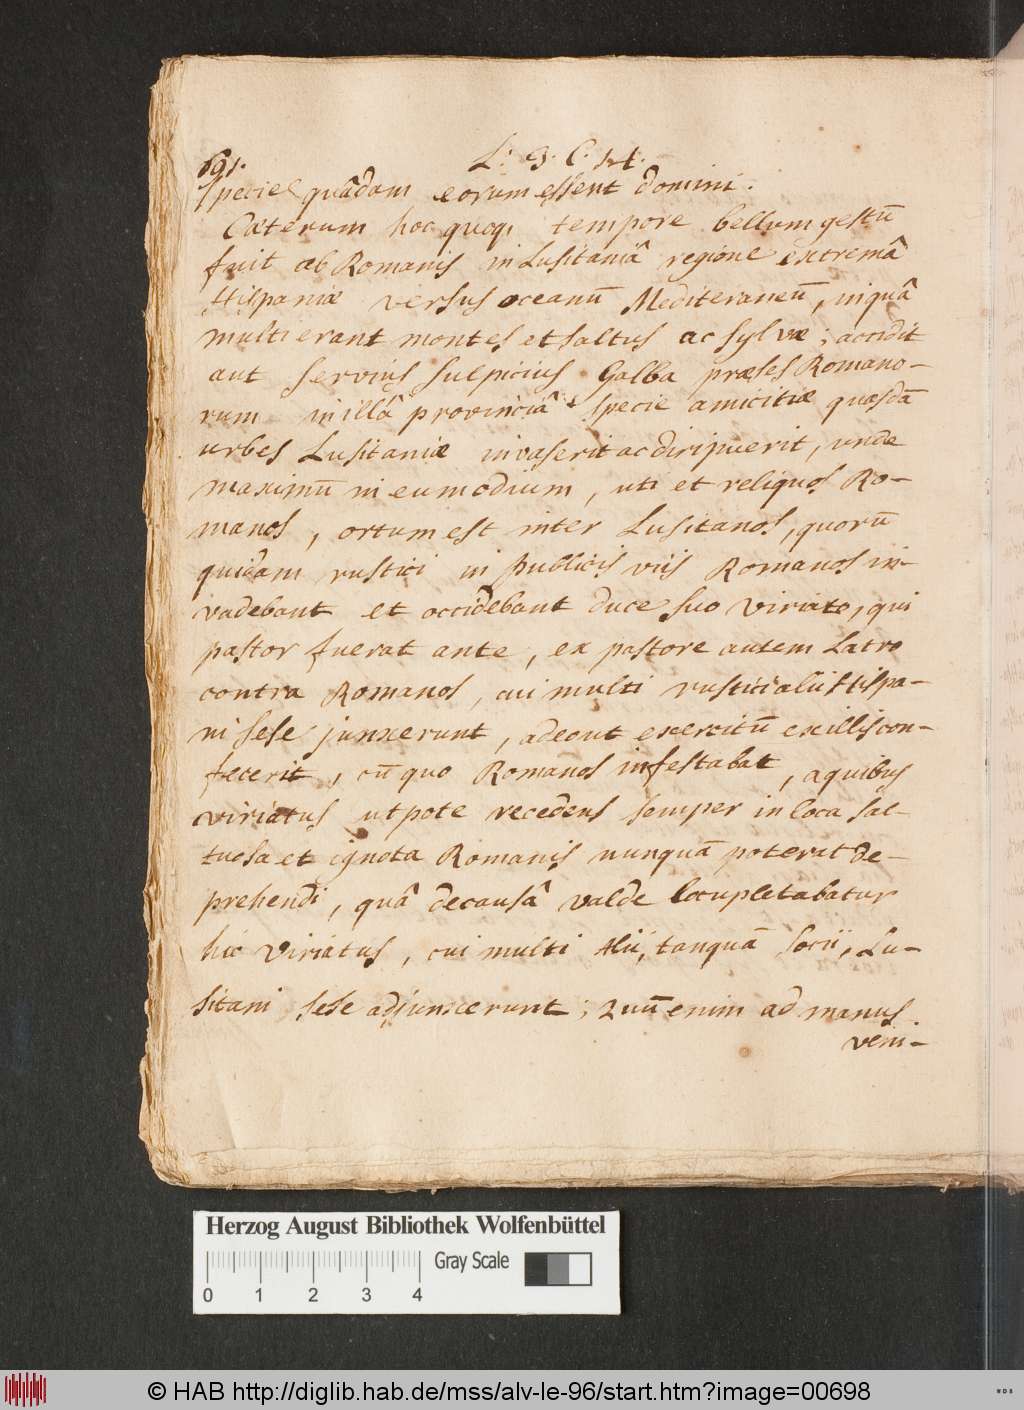 691. L: 3. C. 14.
specie quâdam eorum essent domini.
Cæterum hoc quoq, tempore bellum gestū
fuit ab Romanis in Lusitaniâ regione extremâ
Hispaniæ versus oceanū Mediteraneū, in quâ
multi erant montes et saltus ac sylvæ; accidit
aut Servius Sulpicius Galba præses Romano-
rum in illâ provinciâ specie amicitiæ quasdā
urbes Lusitaniæ invaserit ac diripuerit, unde
maximū in eum odium, uti et reliquos Ro-
manos, ortum est inter Lusitanos, quorū
quidam rustici in publicis viis Romanos in-
vadebant et occidebant duce suo Viriato, qui
pastor fuerat ante, ex pastore autem Latro
contra Romanos, cui multi rustici alii Hispa-
ni sese junxerunt, adeout exercitū ex illis con-
fecerit, cū quo Romanos infestabat, a quibus
Viriatus utpote recedens semper in loca sal-
tuosa et ignota Romanis nunquā poterat de-
prehendi, quâ de causâ valde locupletabatur
hic Viriatus, cui multi alii, tanquā socii, Lu-
sitani sese adjunxerunt; Quū enim ad manus
veni-
Herzog August Bibliothek Wolfenbüttel
Gray Scale
0 1 2 3 4
© HAB http://diglib.hab.de/mss/alv-le-96/start.htm?image=00698